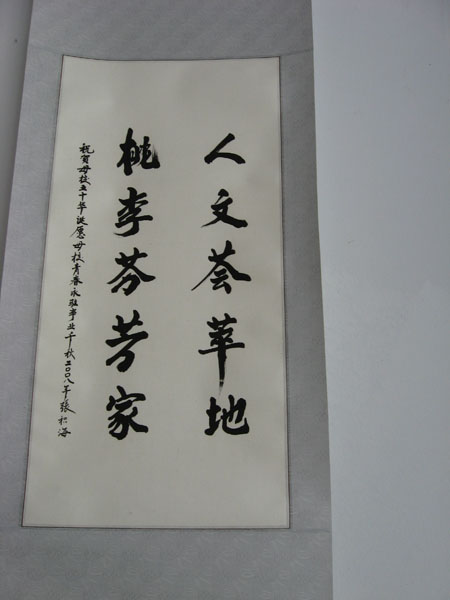 人文荟萃地
桃李芬芳家
祝贺母校五十华诞愿母校青春永驻事业千秋二〇〇八年张松海